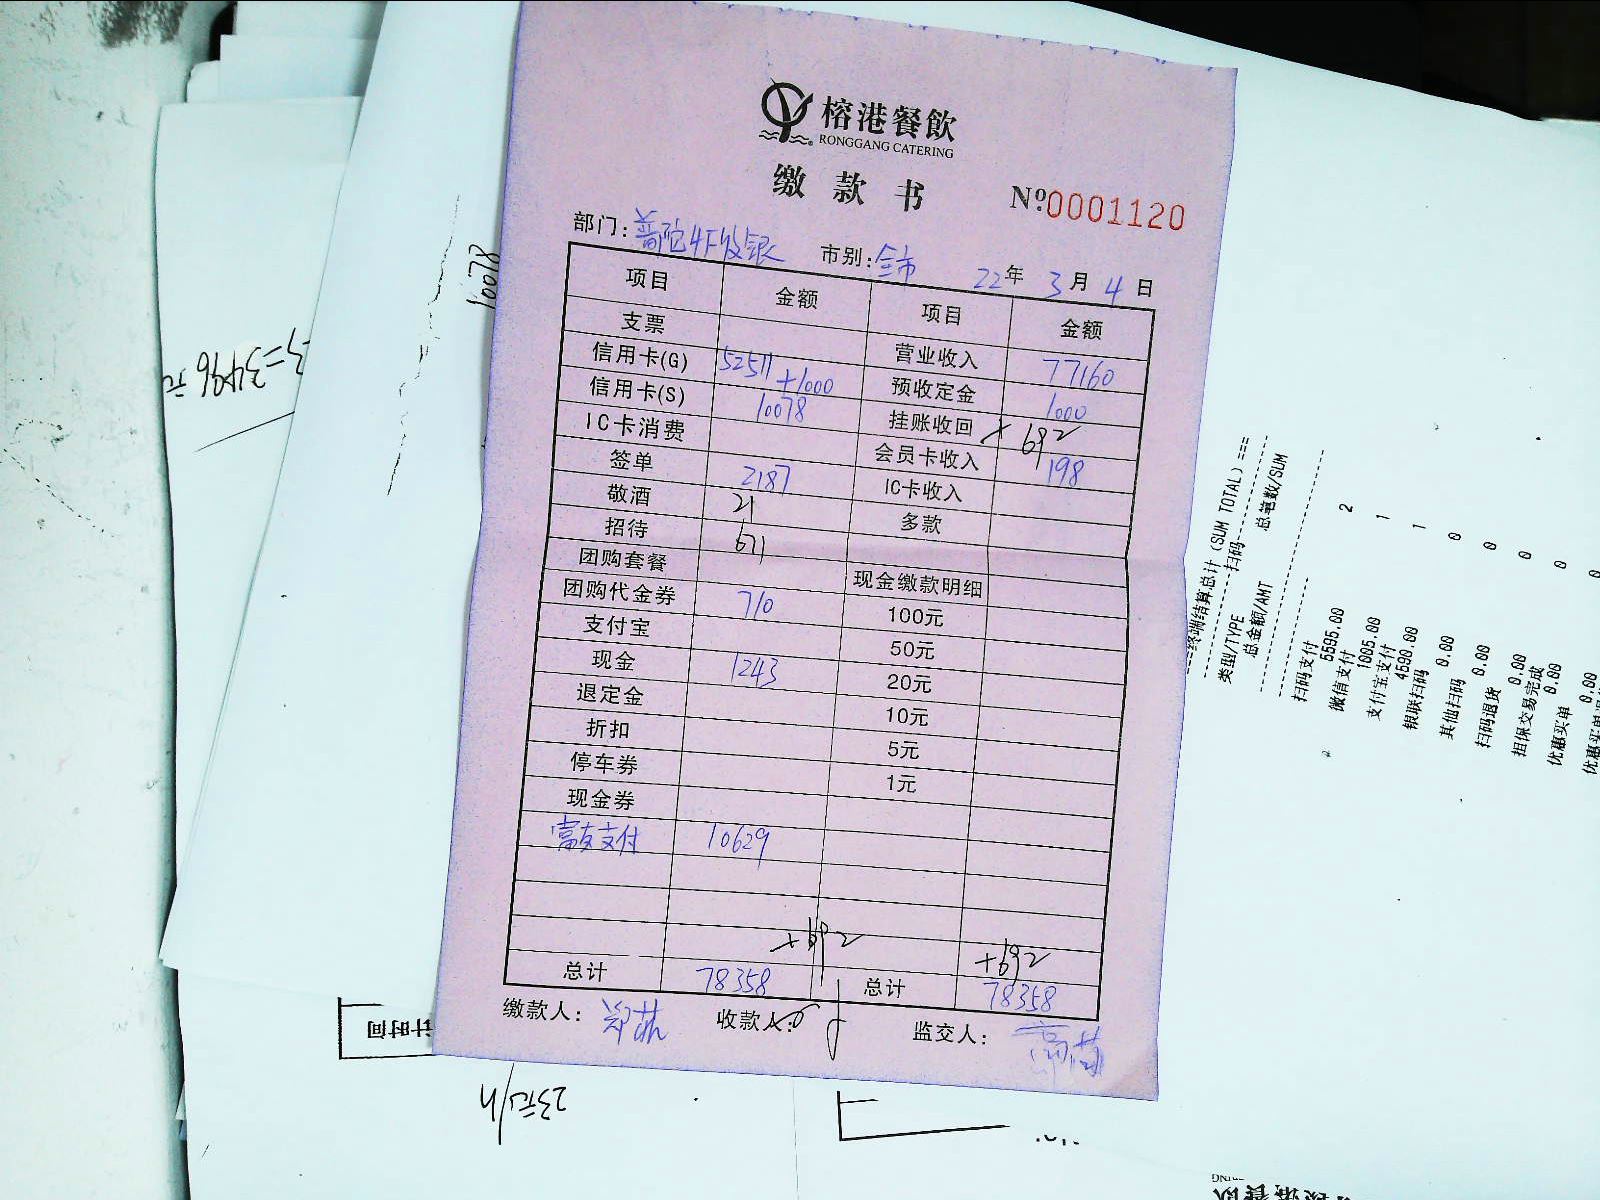 榕港餐飲
RONGGANG CATERING
缴款书
Nº0001120
部门：普陀4F收银 市别：全市 22年3月4日
项目 金额 项目 金额
支票 营业收入 77160
信用卡(G) 52511 +1000 预收定金 1000
信用卡(S) 10078 挂账收回 +692
IC卡消费 会员卡收入 198
签单 2187 IC卡收入
敬酒 21 多款
招待 671
团购套餐 现金缴款明细
团购代金券 710 100元
支付宝 50元
现金 1243 20元
退定金 10元
折扣 5元
停车券 1元
现金券
富友支付 10629
+692 +692
总计 78358 总计 78358
缴款人： 收款人： 监交人：
10078
=3496元
计时间
23元/h
终端结算总计 (SUM TOTAL) ===
类型/TYPE 扫码
总金额/AMT 总笔数/SUM
扫码支付
5595.00 2
微信支付
1005.00 1
支付宝支付
4590.00 1
银联扫码
0.00 0
其他扫码
0.00 0
扫码退货
0.00 0
担保交易完成
0.00 0
优惠买单
0.00 0